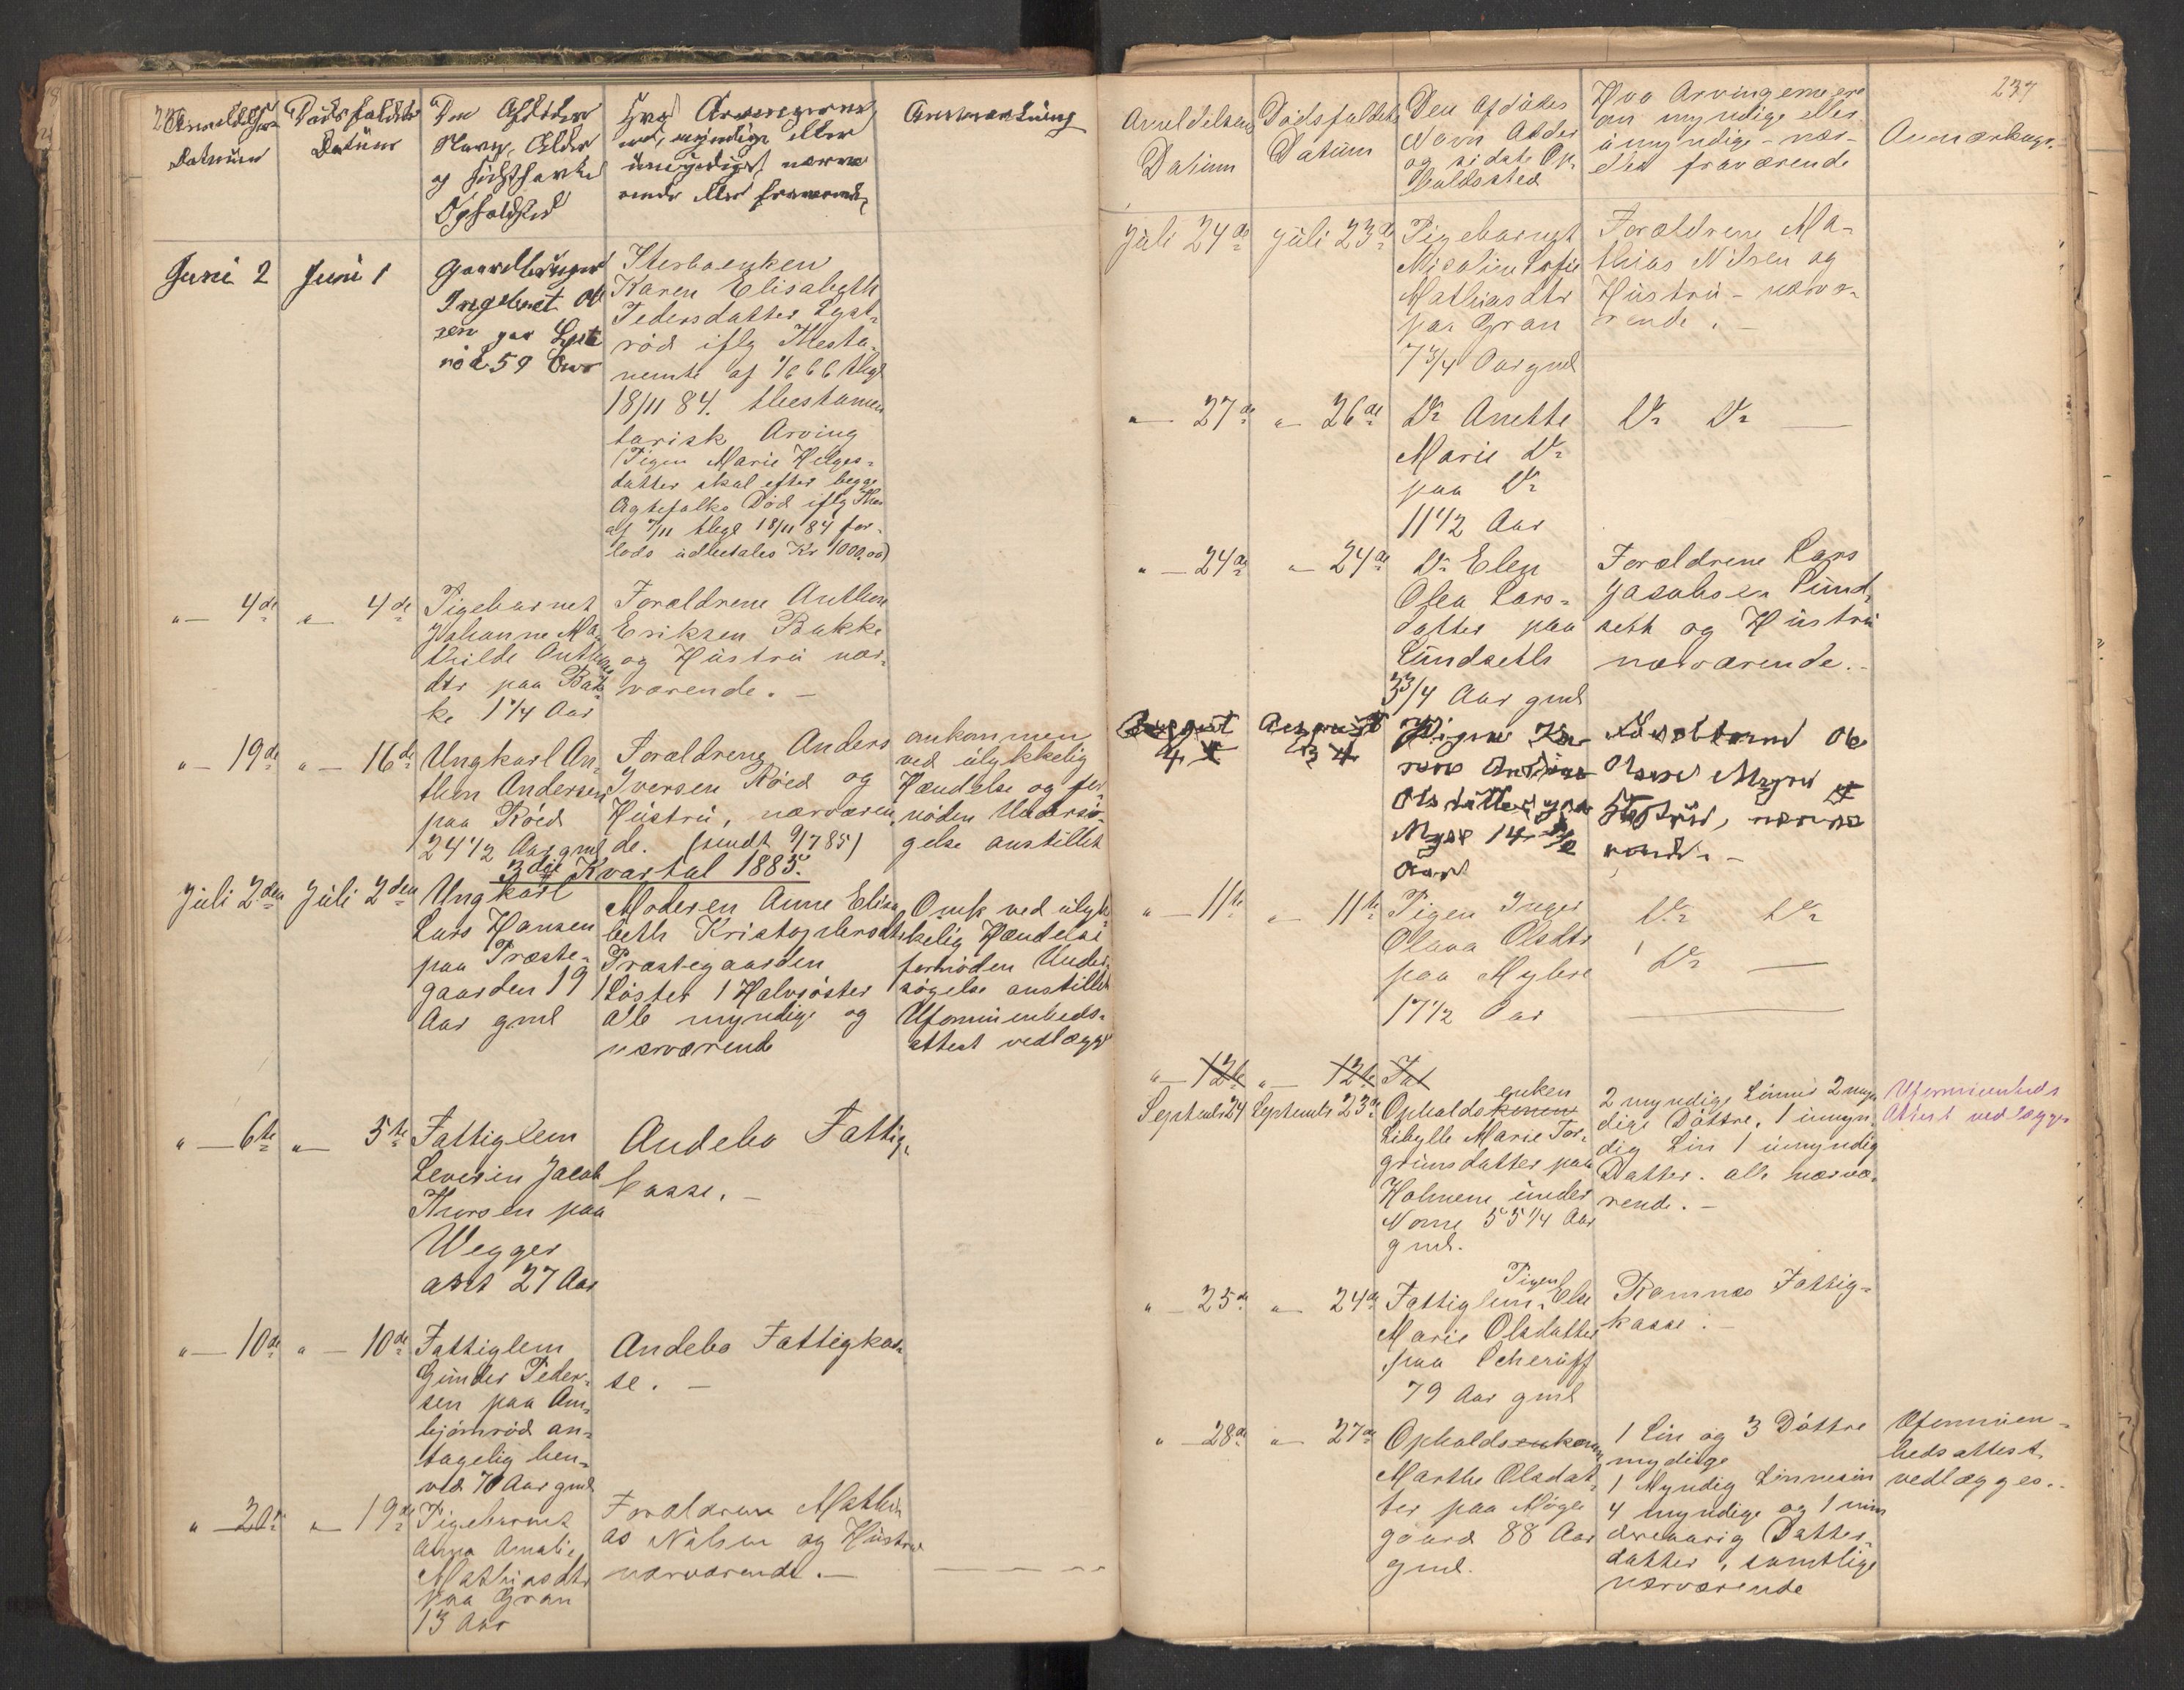 Anmeldelsens
Datum
Dödsfaldets
Datum
Den Afdödes
Navn, Alder
og sidsthavte
Opholdssted
Hvo Arvingerne
ere, myndige eller
umyndige, nærvæ
rende eller fraværende
Anmærkning
Juni 2
Juni 1
Gaardbruger
Ingebret Ol
sen paa Lyst
röd 59 Aar
Sterboenken
Karen Elisabeth
Pedersdatter Lyst-
röd iflg Thesta-
mente af
18/11 84. thestamen
tarisk Arving
(Pigen Marie Helges-
datter skal efter begge
Ægtefolks Död iflg Thes
af 7/11 thlgl 18/11 84 for-
lods udbetales Kr 1000,00)
" — 4de
" — 4de
Pigebarnet
Johanne Ma-
thilde Anthons
dtr paa Bak-
ke 1 1/4 Aar
Forældrene Anthon
Eriksen Bakke
og Hustru nær-
værende. —
" — 19de
" — 16de
Ungkarl An-
thon Andersen
paa Röed
24 1/2 Aar gml
Forældrene Anders
Iversen Röed og
Hustru, nærværen-
de. (sendt 9/7 85)
omkommen
ved ulykkelig
Hændelse og for-
nöden Undersö-
gelse anstillet
3die Kvartal 1885.
Juli 2den
Juli 2den
Ungkarl
Lars Hansen
paa Præste-
gaarden 19
Aar gml
Moderen Anne Elisa
beth Kristophersdtr
Præstegaarden
1 Söster 1 Halvsöster
alle myndige og
nærværende
Omk ved ulyk-
kelig Hændelse
fornöden Under-
sögelse anstillet
Uformuenheds-
attest vedlægges
" — 6te
" — 5te
Fattiglem
Severin Jacob
Thorsen paa
Wegger
27 Aar
Andebo Fattig-
kasse. —
" — 10de
" — 10de
Fattiglem
Gunder Peder-
sen paa Am-
björnröd an-
tagelig hen-
ved 70 Aar gml
Andebo Fattigkas-
se. —
" — 20de
" — 19de
Pigebarnet
Anna Amalie
Mathiasdtr
paa Gran
13 Aar
Forældrene Mathi
as Nilsen og Hustru
nærværende. —
237
Anmeldelsens
Datum
Dödsfaldets
Datum
Den Afdödes
Navn Alder
og sidste Op-
holdssted
Hvo Arvingerne ere
om myndige eller
umyndige - nær-
eller fraværende
Anmærkninger
Juli 24de
Juli 23de
Pigebarnet
Nicoline Sofie
Mathiasdtr
paa Gran
7 3/4 Aar gml
Forældrene Ma-
thias Nilsen og
Hustru - nærvæ-
rende. —
" — 27de
" — 26de
Do Anette
Marie Do
paa Do
11 1/2 Aar
Do Do —
" — 24de
" — 24de
Do Elen
Olea Lars-
datter paa
Lundseth
3 3/4 Aar gml
Forældrene Lars
Jacobsen Lund-
seth og Hustru
nærværende. -
August
4
August
3
Pigen Ka-
ren
Olsdatter paa
14 1/2
Aar
Forældrene Ole
Olsen og
Hustru, nærvæ
rende. —
" — 11te
" — 11te
Pigen Inger
Olava Olsdtr
paa Myhre
17 1/2 Aar
Do Do
Do —
" — 12te
" — 12te
Fat
Septemb 24
Septemb 23de
enken
Opholdskonen
Sibylle Marie Tor-
grimsdatter paa
Holmene under
Nome 55 1/4 Aar
gml.
2 myndige Sönner 2 myn
dige Döttre, 1 umyn-
dig Sön 1 umyndig
Datter. alle nærvæ-
rende. —
Uformuenheds
Attest vedlægges
" — 25de
" — 24de
Pigen
Fattiglem Else
Marie Olsdatter
paa Scheruff
79 Aar gml
Ramnes Fattig-
kasse. —
" — 28de
" — 27de
Opholdsenkonen
Marthe Olsdat-
ter paa Möge
gaard 88 Aar
gml.
1 Sön og 3 Döttre
mydige
1 Myndig Sönnesön
4 myndige og 1 min
dreaarig Datter-
datter, samtlige
nærværende
Uformuen-
hedsattest
vedlægges..